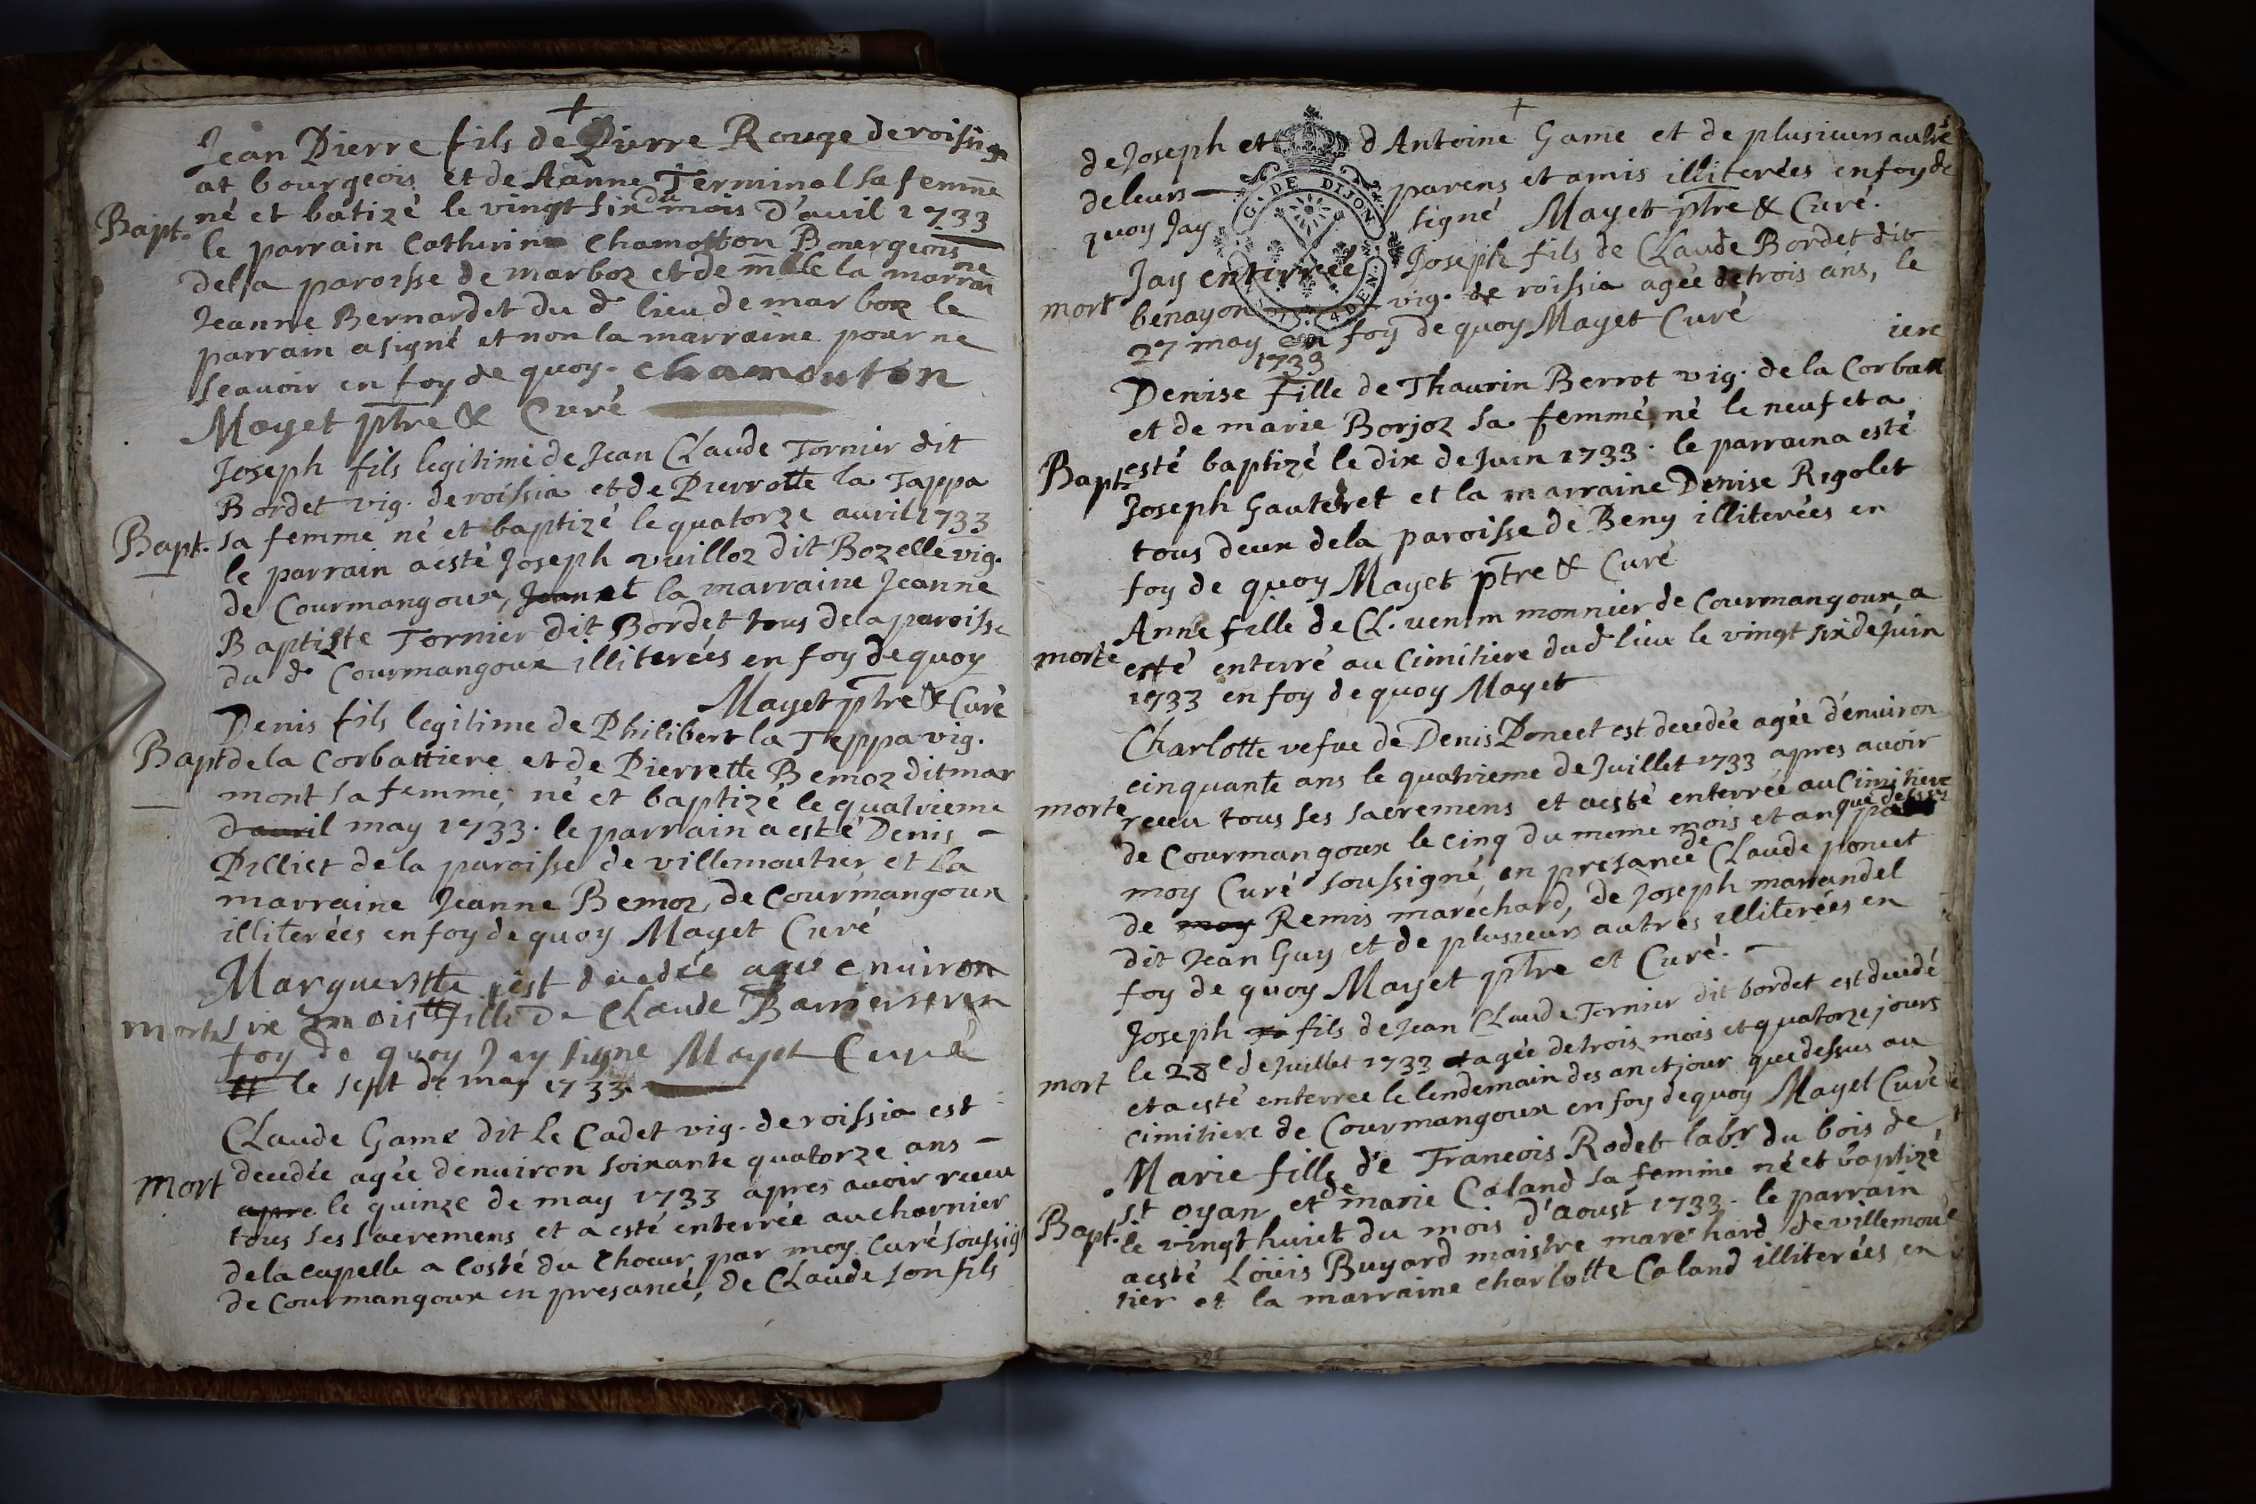 Jean Pierre fils de Pierre Rouge de roissia
at bourgeois et de Anne Terminal sa femme
Bapt. né et batizé le vingt six du mois d'avril 1733
le parrain Catherin Chamotton Bourgeois
de la paroisse de marboz et de la marraine
Jeanne Bernardet du d. lieu de marboz le
parrain a signé et non la marraine pour ne
scavoir en foy de quoy. chamouton
Mayet ptre & Curé
Joseph fils legitime de Jean Claude Tornier dit
Bordet vig. de roissia et de Pierrotte la Tappa
Bapt. sa femme né et baptizé le quatorze auril 1733
le parrain a esté Joseph vuilloz dit Bozelle vig.
de Courmangoux, Jeannet la marraine Jeanne
Baptiste Tornier dit Bordet tous de la paroisse
du d. Courmangoux illiterées en foy de quoy
Mayet ptre & Curé
Denis fils legitime de Philibert la Teppa vig.
Bapt de la Corbattiere et de Pierrette Bemoz dit mar
mont sa femme, né et baptizé le quatrieme
d'auril may 1733. le parrain a esté Denis
Pilliet de la paroisse de villemoutier et la
marraine Jeanne Bemoz, de Courmangoux
illiterées en foy de quoy Mayet Curé
Marguerite est decedée agée enuiron
morte six mois fille de Claude Barrier en
foy de quoy Jay signe Mayet Curé
le sept de may 1733
Claude Game dit Le Cadet vig. de roissia est
mort decedée agée denuiron soixante quatorze ans
apre le quinze de may 1733 apres auoir receu
tous ses sacremens et a esté enterrée au charnier
de la capelle a costé du Choeur par moy curé soussig
de Courmangoux en presance, de Claude son fils
de Joseph et d Antoine Game et de plusieurs autre
de leurs parens et amis illiterées en foy de
quoy Jay signé Mayet ptre & Curé.
Jay enterrée Joseph fils de Claude Bordet dit
mort benayon vig. de roissia agée de trois ans, le
27 may en foy de quoy Mayet Curé
1733
iere
Denise fille de Thaurin Berrot vig. de la Corbatt
et de marie Borjoz sa femme, né le neuf et a
Bapt. esté baptizé le dix de Juin 1733. le parrain a esté
Joseph Gauteret et la marraine Denise Rigolet
tous deux de la paroisse de Beny illiterées en
foy de quoy Mayet ptre & Curé
Anne fille de Cl. uenin monnier de Courmangoux a
morte esté enterré au Cimitiere du d. lieu le vingt six de Juin
1733 en foy de quoy Mayet
Charlotte vefue de Denis Poncet est decedée agée d'enuiron
cinquante ans le quatrieme de Juillet 1733 apres auoir
morte receu tous ses sacremens et a esté enterrée au Cimitiere
de Courmangoux le cinq du meme mois et an que dessus par
moy Curé soussigné, en presance de Claude poncet
de moy Remis maréchard, de Joseph marandel
dit Jean Guy et de plusieurs autres illiterées en
foy de quoy Mayet ptre et Curé.
Joseph fils de Jean Claude Tornier dit bordet est decedé
mort le 28e de Juillet 1733 et agée de trois mois et quatorze jours
et a esté enterree le lendemain des an et jour que dessus au
cimitiere de Courmangoux en foy de quoy Mayet Curé
Marie fille de Francois Rodet labr du bois de
st oyan et de marie Caland sa femme né et baptizé
Bapt. le vingt huict du mois d'aoust 1733. le parrain
a esté Louis Buyard maistre marechard de villemou
tier et la marraine charlotte Caland illiterées en
G. DE DIJON